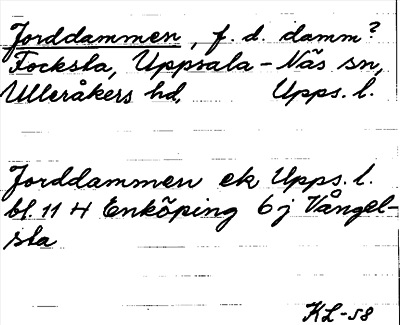 Jorddammen, f. d. damm?
Focksta, Uppsala-Näs sn,
Ulleråkers hd, Upps. l.
Jorddammen ek Upps. l.
bl. 11 H Enköping 6 j Vångel-
sta
KL-58